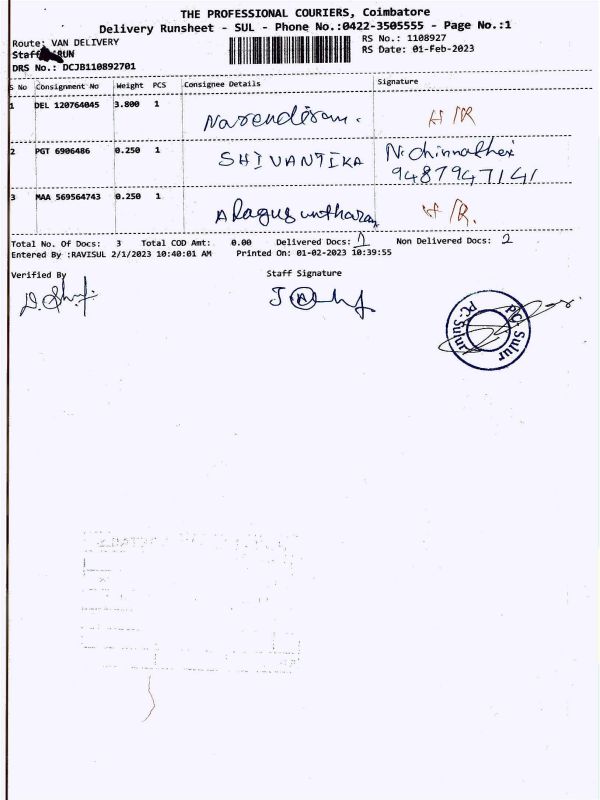 THE PROFESSIONAL COURIERS, Coimbatore
Delivery Runsheet - SUL - Phone No.:0422-3505555 - Page No.:1
Route: VAN DELIVERY
RS No.: 1108927
RS Date: 01-Feb-2023
DRS No.: DCJB110892701
S No Consignment No Weight PCS Consignee Details Signature
1 DEL 120764045 3.800 1 Narendiran. H/R
2 PGT 6906486 0.250 1 SHIVANTIKA N. Chinnathei
9487947141
3 MAA 569564743 0.250 1 Alagusuntharam H/R.
Total No. Of Docs: 3 Total COD Amt: 0.00 Delivered Docs: 1 Non Delivered Docs: 2
Entered By :RAVISUL 2/1/2023 10:40:01 AM Printed On: 01-02-2023 10:39:55
Verified By Staff Signature
PC-Sulur PC-Sulur